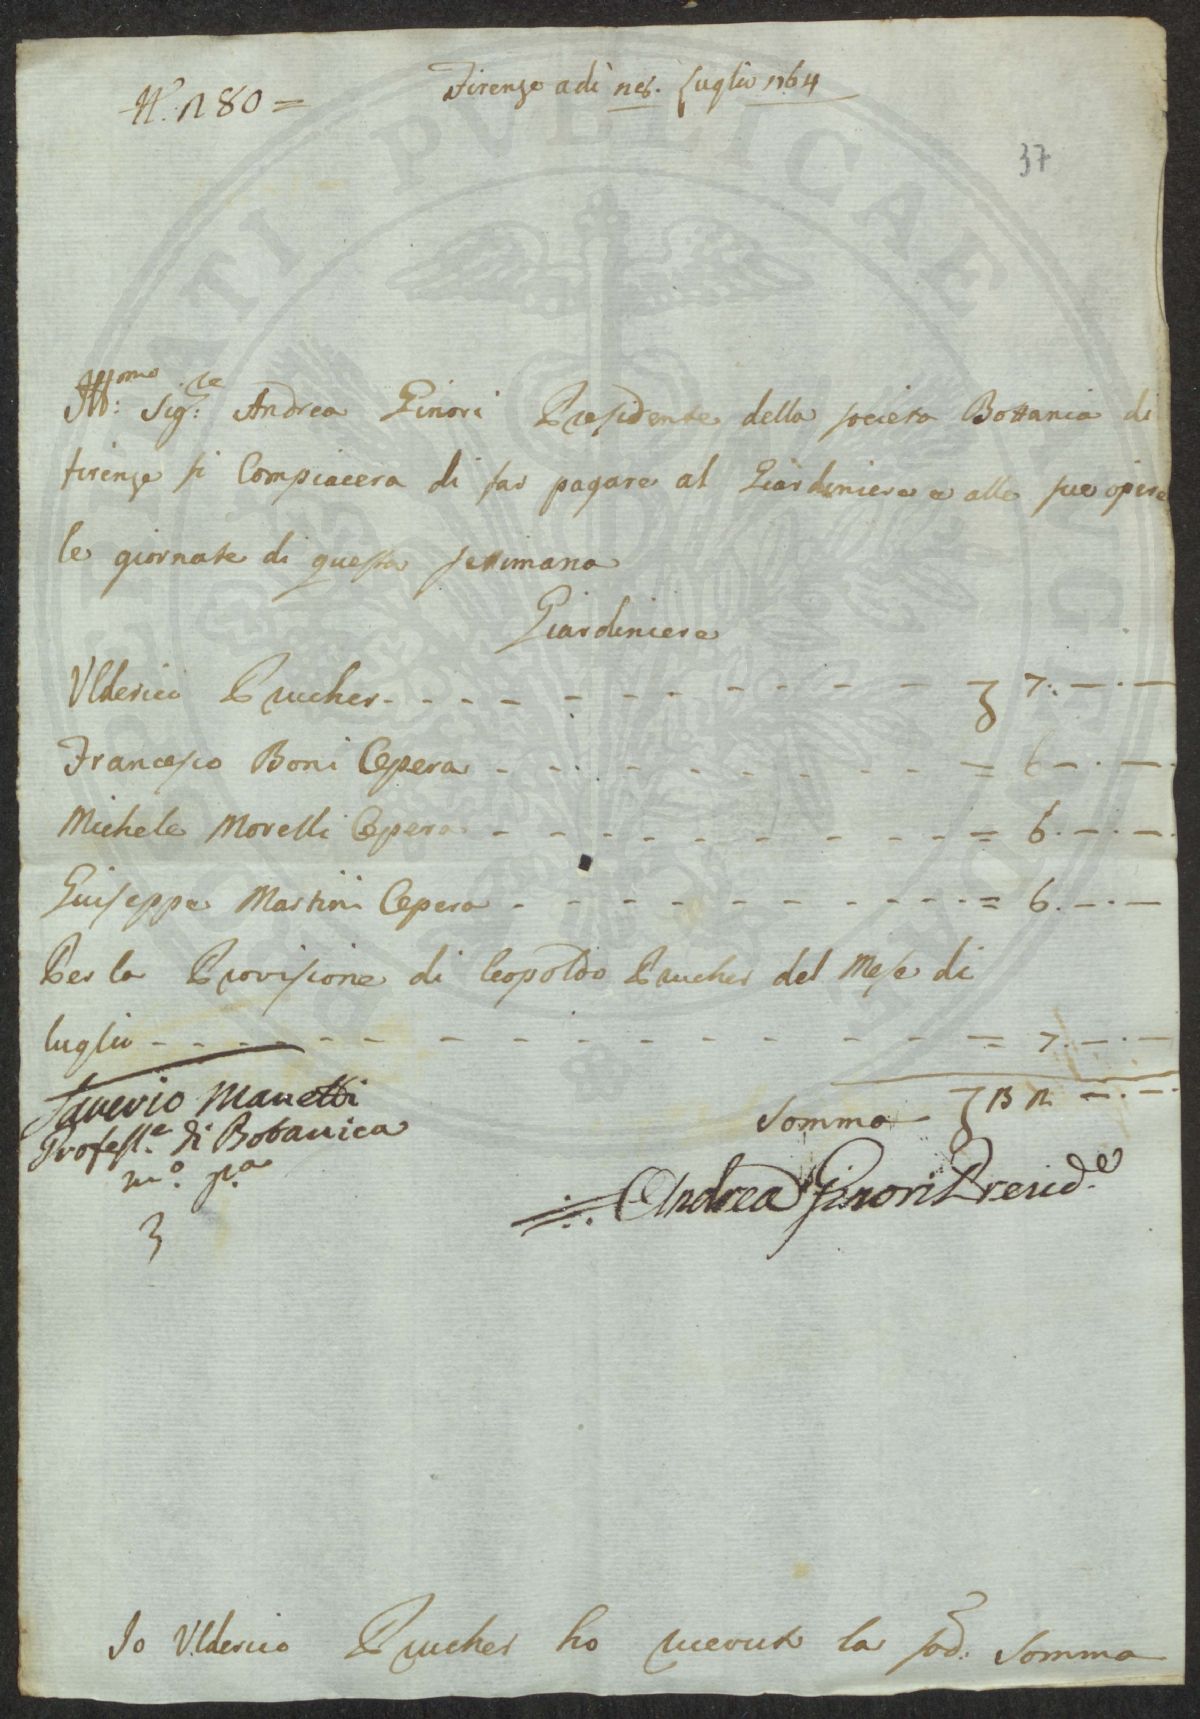 N.° 180=
Firenze adi 28. Luglio 1764
37
Ill:mo Sig:re Andrea Ginori Presidente della società Bottanica di
firenze si Compiacera di far pagare al Giardiniere e alle sue opere
le giornate di questa settimana
Giardiniere
Vlderico Prucher - - - - - - - - - - 7. — . —
Francesco Boni Opera - - - - - - - - = 6 — . —
Michele Morelli Opera - - - - - - - - = 6. — . —
Guiseppe Martini Opera - - - - - - - - = 6. — . —
Per la Provisione di Leopoldo Prucher del Mese di
luglio - - - - - - - - - - - - = 7. — . —
Somma — — . — .
Saverio Manetti
Profess.e di Botanica
m.o p.a
Andrea Ginori Presid.e
Io Vlderico Prucher ho riceuuto la sod: Somma
PVBLICAE